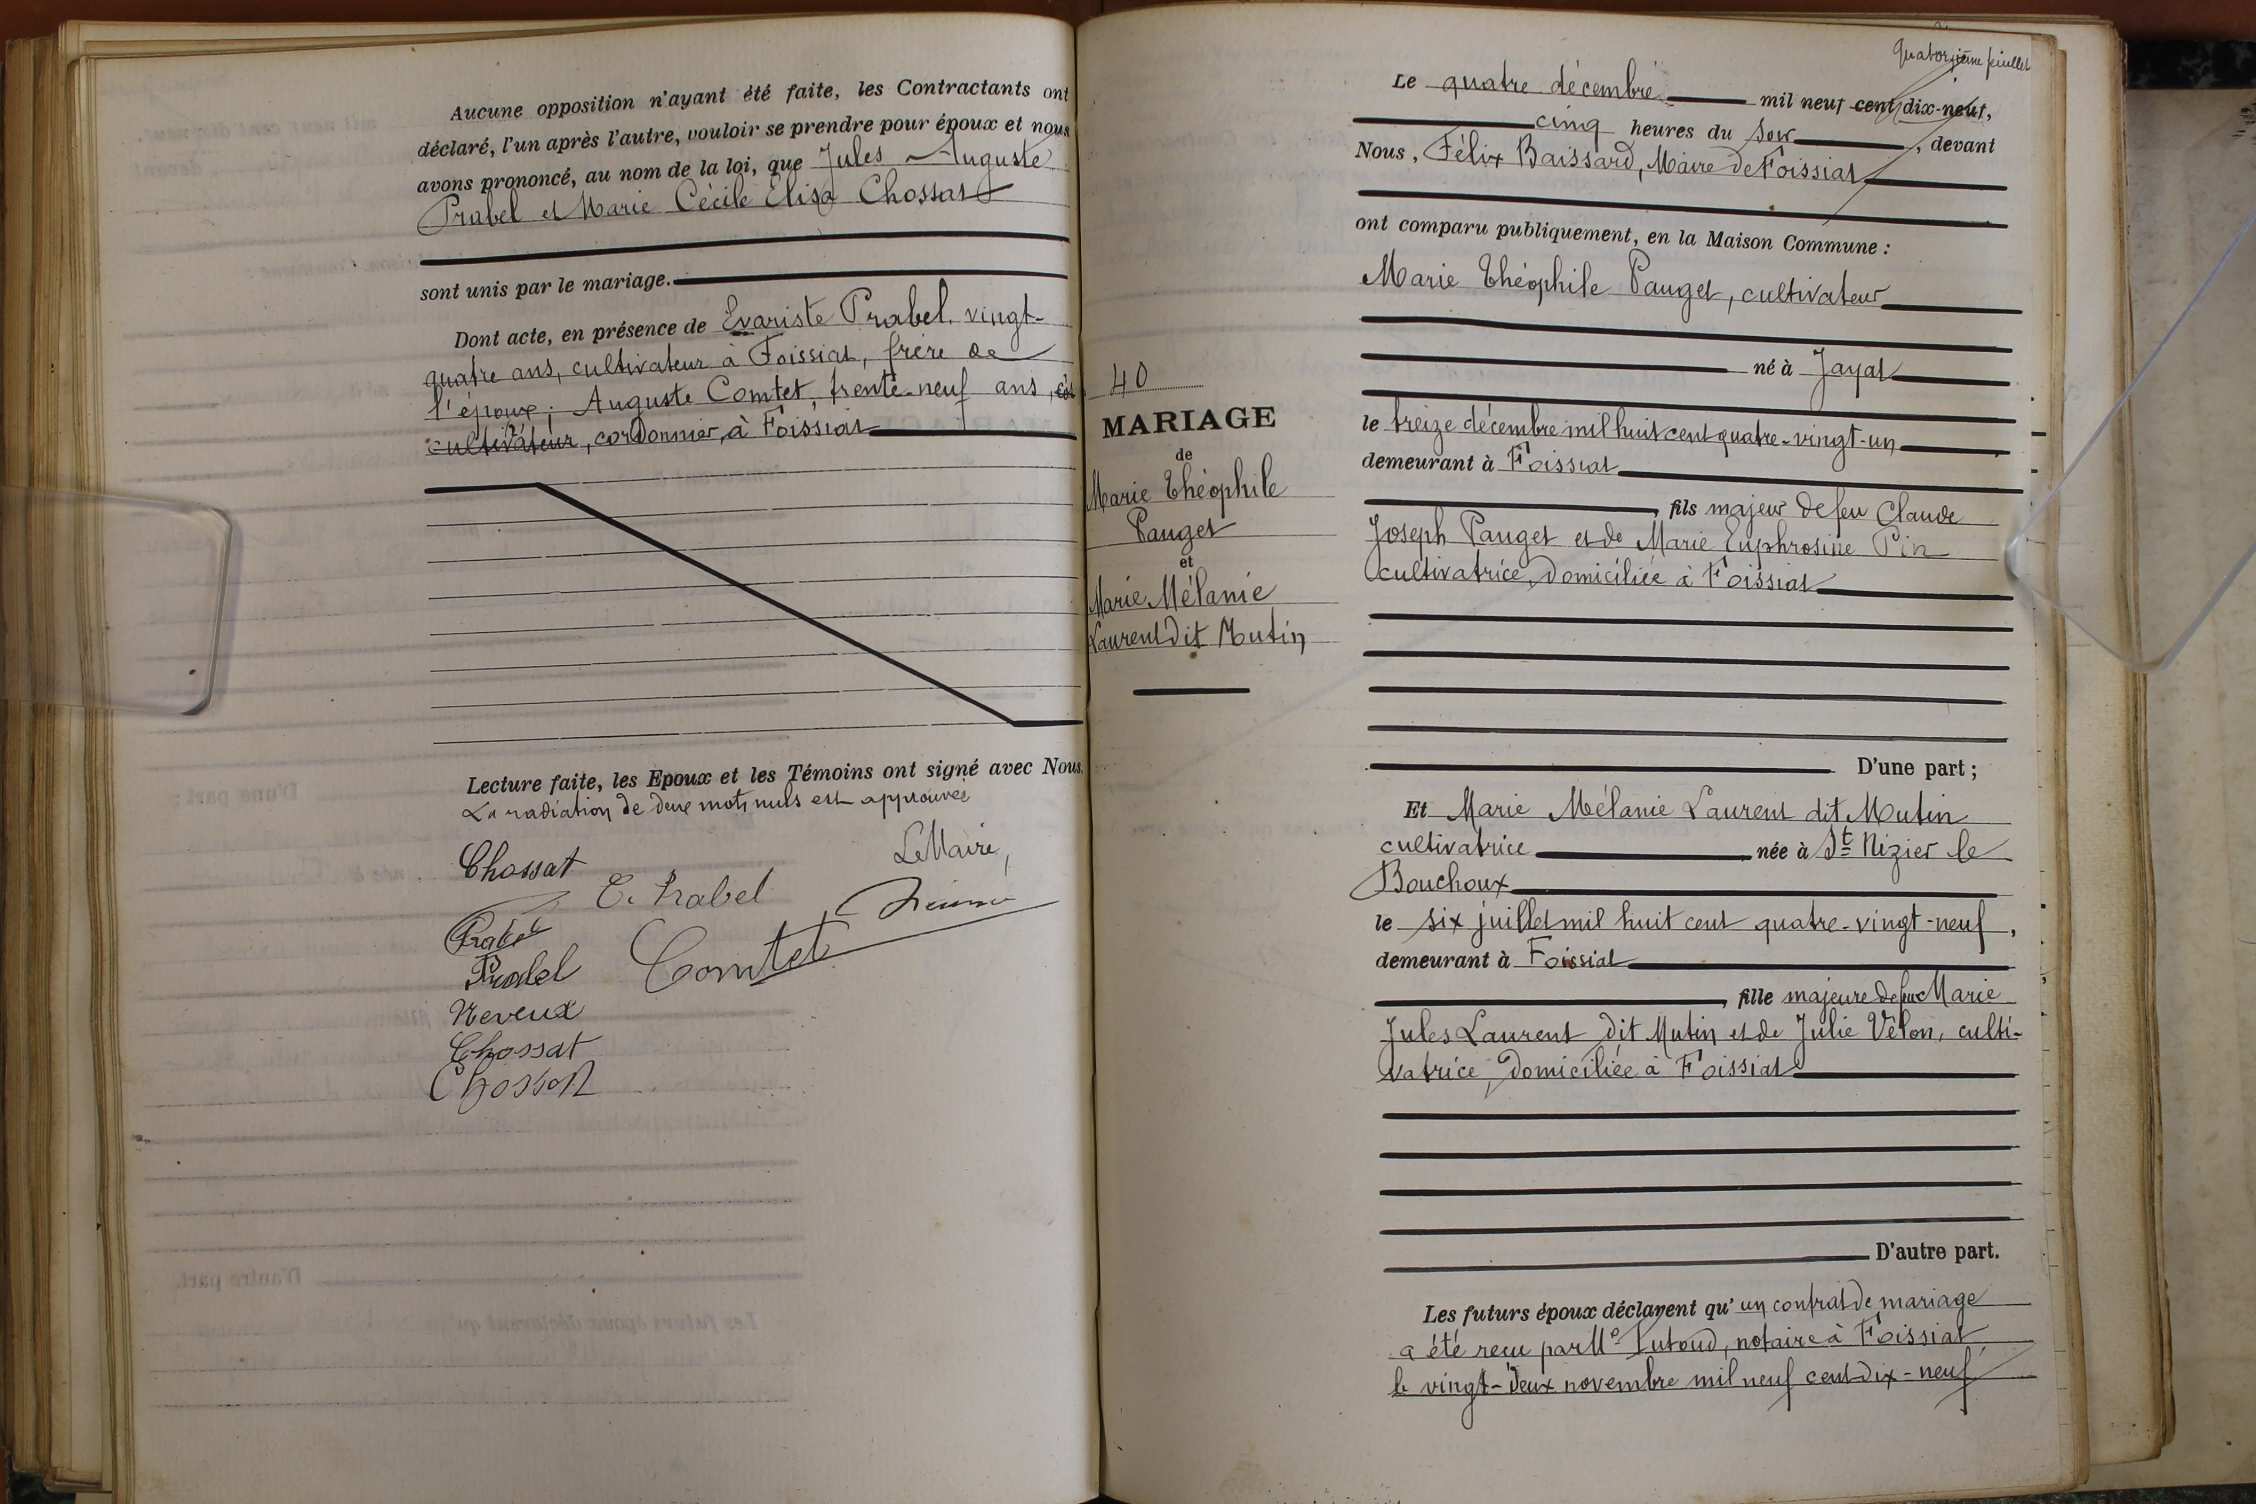 Aucune opposition n'ayant été faite, les Contractants ont
déclaré, l'un après l'autre, vouloir se prendre pour époux et nous
avons prononcé, au nom de la loi, que Jules Auguste
Prabel et Marie Cécile Elisa Chossat
sont unis par le mariage.
Dont acte, en présence de Evariste Prabel, vingt-
quatre ans, cultivateur à Foissiat, frère de
l'époux; Auguste Comtet, trente-neuf ans,
cultivateur, cordonnier, à Foissiat
Lecture faite, les Epoux et les Témoins ont signé avec Nous.
La radiation de deux mots nuls est approuvée
Chossat
Le Maire,
E. Prabel
Prabel
Comtet
Prabel
Neveux
Chossat
Chossat
40
MARIAGE
de
Marie Théophile
Pauget
et
Marie Mélanie
Laurent dit Mutin
Quatorzième feuillet
Le quatre décembre mil neuf cent dix-neuf,
cinq heures du soir, devant
Nous, Félix Baissard, Maire de Foissiat
ont comparu publiquement, en la Maison Commune :
Marie Théophile Pauget, cultivateur
né à Jayat
le treize décembre mil huit cent quatre-vingt-un
demeurant à Foissiat
, fils majeur de feu Claude
Joseph Pauget et de Marie Euphrosine Pin
cultivatrice, domiciliée à Foissiat
D'une part ;
Et Marie Mélanie Laurent dit Mutin
cultivatrice née à St Nizier le
Bouchoux
le six juillet mil huit cent quatre-vingt-neuf,
demeurant à Foissiat
, fille majeure de feu Marie
Jules Laurent dit Mutin et de Julie Vélon, culti-
vatrice, domiciliée à Foissiat
D'autre part.
Les futurs époux déclarent qu'un contrat de mariage
a été reçu par Me Putoud, notaire à Foissiat
le vingt-deux novembre mil neuf cent dix-neuf